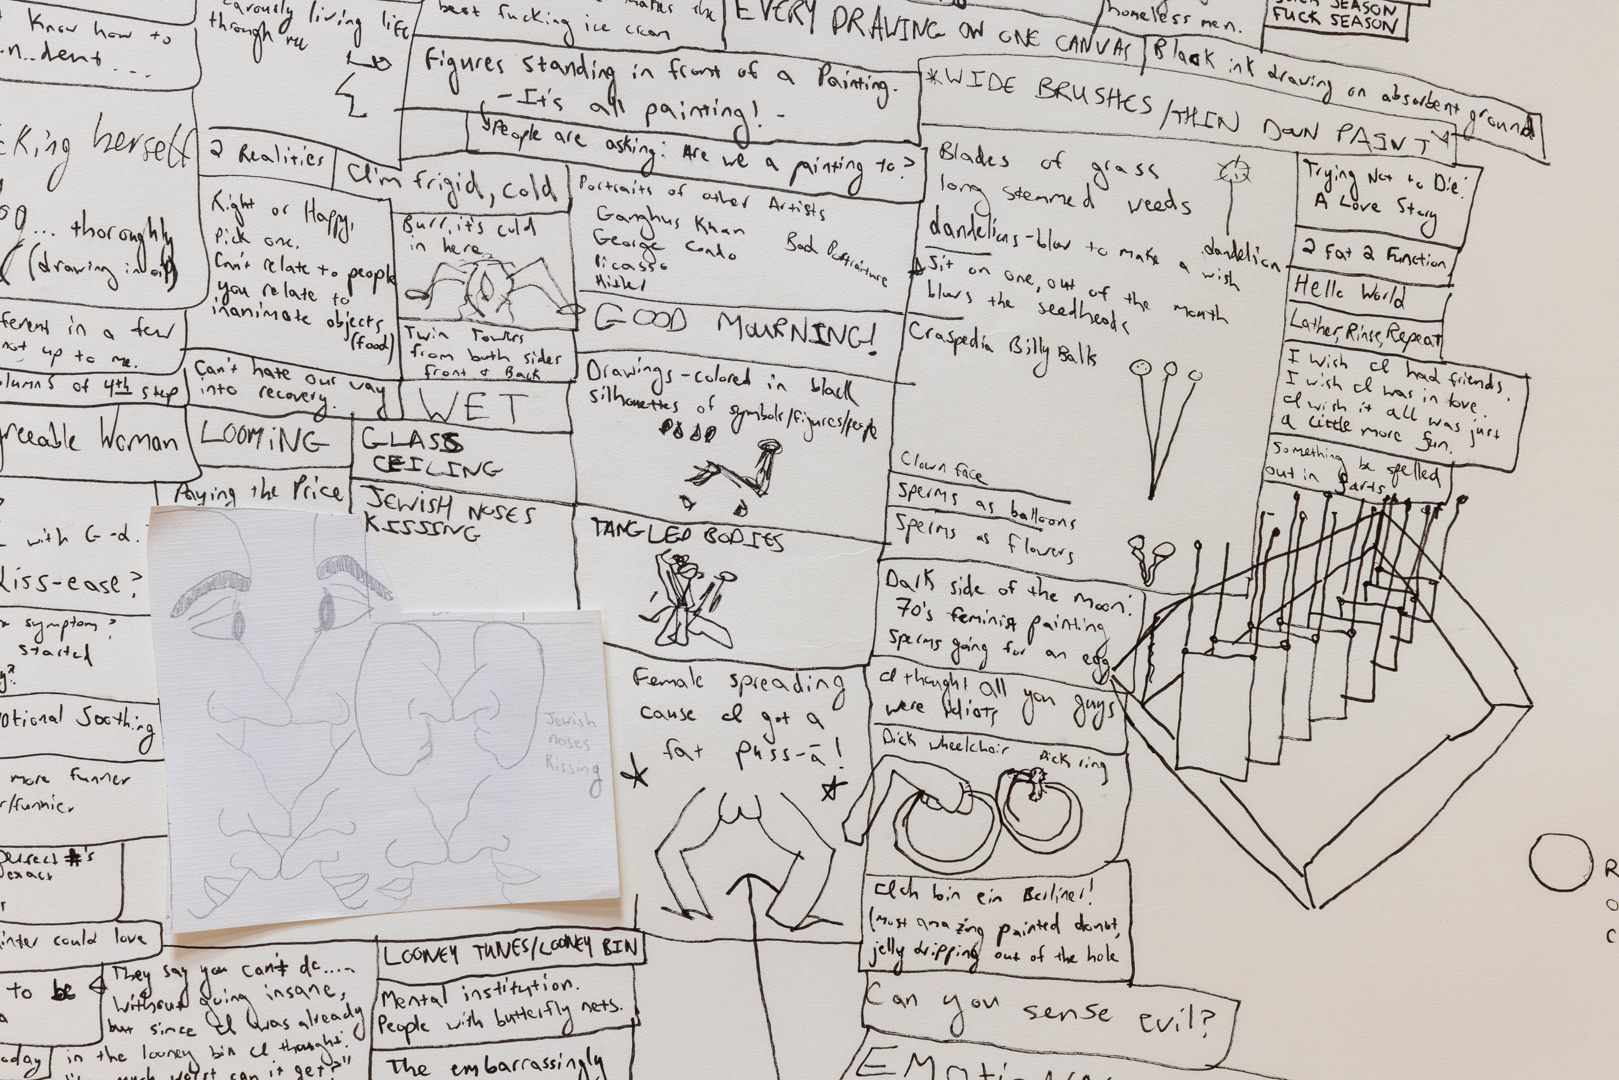 Know how to
through
best fucking ice cream
EVERY DRAWING ON ONE CANVAS
homeless men.
SEASON
FUCK SEASON
Black ink drawing on absorbent ground
Figures standing in front of a Painting.
- It's all painting! -
People are asking: Are we a painting to?
*WIDE BRUSHES/THIN DOWN PAINT*
herself
... thoroughly
(drawing in oil)
2 Realities
I'm frigid, cold
Right or Happy,
Pick one.
Can't relate to people
you relate to
inanimate objects
(food)
Burr, it's cold
in here
Twin Towers
from both sides
front & Back
Can't hate our way
into recovery.
WET
Portraits of other Artists
Ganghus Khan
George Condo
Picasso
Hitler
Bad Portraiture
GOOD MOURNING!
Drawings - colored in black
silhouettes of symbols/figures/people
Blades of grass
long stemmed weeds
dandelions - blow to make a wish
dandelion
Sit on one, out of the mouth
blows the seedheads
Craspedia Billy Balls
Clown face
Sperms as balloons
Sperms as flowers
Trying Not to Die:
A Love Story
2 Fat 2 Function
Hello World
Lather, Rinse, Repeat
I wish I had friends.
I wish I was in love.
I wish it all was just
a little more fun.
Something be spelled
out in farts
in a few
not up to me.
columns of 4th step
Woman
LOOMING
GLASS
CEILING
Paying the Price
JEWISH NOSES
KISSING
TANGLED BODIES
with G-d.
Kiss-ease?
symptom?
started
Soothing
more funner
/funnier
#'s
exact
Jewish
noses
Kissing
Dark side of the moon:
70's feminist painting
sperms going for an egg
I thought all you guys
were idiots
Female spreading
cause I got a
fat puss-ā!
Dick wheelchair
Dick ring
Ich bin ein Berliner!
(Most amazing painted donut,
jelly dripping out of the hole
Can you sense evil?
could love
to be
They say you can't do.....
without going insane,
but since I was already
in the looney bin I thought:
worst can it get?"
LOONEY TUNES/LOONEY BIN
Mental institution.
People with butterfly nets.
The embarrassingly